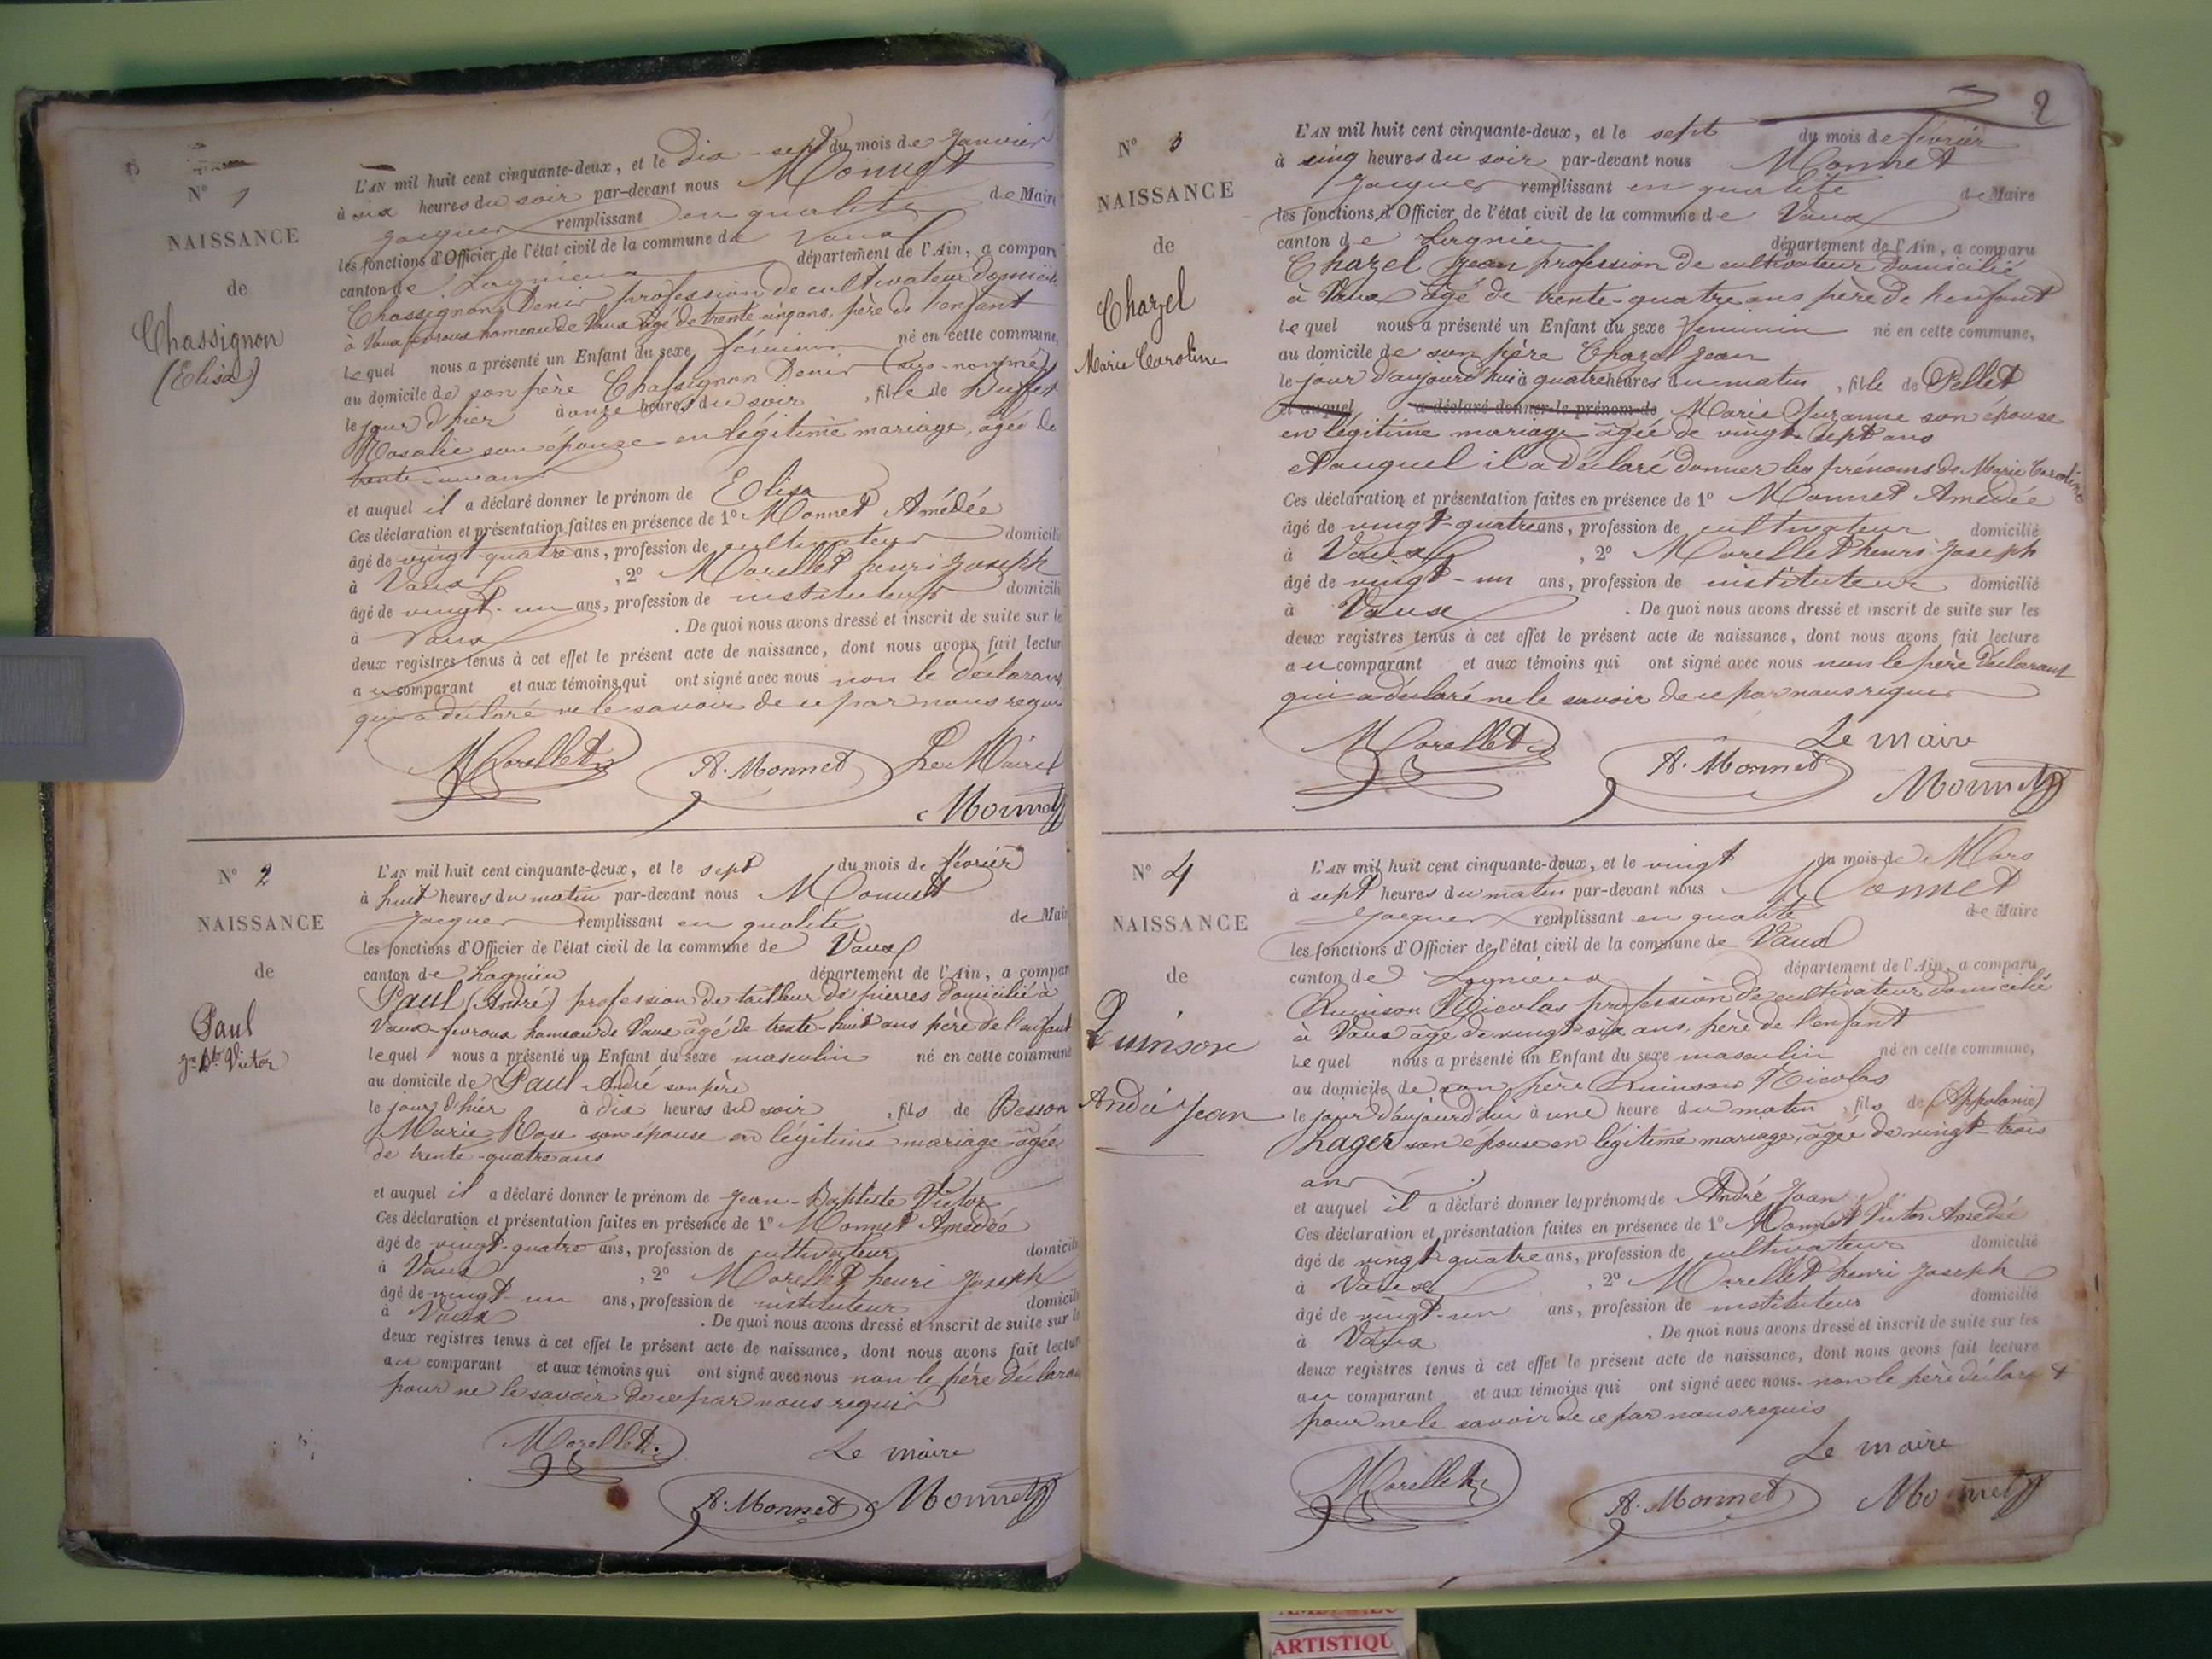 N° 1
NAISSANCE
de
Chassignon
(Elisa)
L'AN mil huit cent cinquante-deux, et le Dix-sept du mois de Janvier
à six heures du soir par-devant nous Monnet
Jacques remplissant en qualité de Maire
les fonctions d'Officier de l'état civil de la commune de Vaux
canton de Lagnieu département de l'Ain, a compar
Chassignon Denis profession de cultivateur domicilié
à Vaux févroux hameau de Vaux âgé de trente-cinq ans, père de l'enfant
Lequel nous a présenté un Enfant du sexe féminin né en cette commune,
au domicile de son père Chassignon Denis (sus-nommé)
le jour d'hier à onze heures du soir, fille de Buffet
Rosalie son épouse en légitime mariage, âgée de
trente-un ans
et auquel il a déclaré donner le prénom de Elisa
Ces déclaration et présentation faites en présence de 1° Monnet Amédée
âgé de vingt-quatre ans, profession de cultivateur domicilié
à Vaux, 2° Morellet henri Joseph
âgé de vingt-un ans, profession de instituteur domicilié
à Vaux. De quoi nous avons dressé et inscrit de suite sur le
deux registres tenus à cet effet le présent acte de naissance, dont nous avons fait lectur
au comparant et aux témoins qui ont signé avec nous non le déclarant
qui a déclaré ne le savoir de ce par nous requis
Morellet A. Monnet Le Maire
Monnet
N° 2
NAISSANCE
de
Paul
Jn Bte Victor
L'AN mil huit cent cinquante-deux, et le sept du mois de février
à huit heures du matin par-devant nous Monnet
Jacques remplissant en qualité de Mair
les fonctions d'Officier de l'état civil de la commune de Vaux
canton de Lagnieu département de l'Ain, a compar
Paul (André) profession de tailleur de pierres domicilié à
Vaux-fevroux hameau de Vaux âgé de trente-huit ans père de l'enfant
Lequel nous a présenté un Enfant du sexe masculin né en cette commune
au domicile de Paul André son père
le jour d'hier à dix heures du soir, fils de Besson
Marie Rose son épouse en légitime mariage âgée
de trente-quatre ans
et auquel il a déclaré donner le prénom de Jean-Baptiste Victor
Ces déclaration et présentation faites en présence de 1° Monnet Amédée
âgé de vingt-quatre ans, profession de cultivateur domicili
à Vaux, 2° Morellet henri Joseph
âgé de vingt-un ans, profession de instituteur domicili
à Vaux. De quoi nous avons dressé et inscrit de suite sur le
deux registres tenus à cet effet le présent acte de naissance, dont nous avons fait lectur
au comparant et aux témoins qui ont signé avec nous non le père déclarant
pour ne le savoir de ce par nous requis
Morellet. Le maire
A. Monnet Monnet
2
N° 3
NAISSANCE
de
Chazel
Marie Caroline
L'AN mil huit cent cinquante-deux, et le sept du mois de février
à cinq heures du soir par-devant nous Monnet
Jacques remplissant en qualité de Maire
les fonctions d'Officier de l'état civil de la commune de Vaux
canton de Lagnieu département de l'Ain, a comparu
Chazel Jean profession de cultivateur domicilié
à Vaux âgé de trente-quatre ans père de l'enfant
Lequel nous a présenté un Enfant du sexe féminin né en cette commune,
au domicile de son père Chazel Jean
le jour d'aujourd'hui à quatre heures du matin, fille de Pellet
et auquel a déclaré donner le prénom de Marie Suzanne son épouse
en légitime mariage âgée de vingt-sept ans
et auquel il a déclaré donner les prénoms de Marie Caroline
Ces déclaration et présentation faites en présence de 1° Monnet Amédée
âgé de vingt-quatre ans, profession de cultivateur domicilié
à Vaux, 2° Morellet henri Joseph
âgé de vingt-un ans, profession de instituteur domicilié
à Vaux. De quoi nous avons dressé et inscrit de suite sur les
deux registres tenus à cet effet le présent acte de naissance, dont nous avons fait lecture
au comparant et aux témoins qui ont signé avec nous non le père déclarant
qui a déclaré ne le savoir de ce par nous requis
Morellet A. Monnet Le maire
Monnet
N° 4
NAISSANCE
de
Quinson
André Jean
L'AN mil huit cent cinquante-deux, et le vingt du mois de Mars
à sept heures du matin par-devant nous Monnet
Jacques remplissant en qualité de Maire
les fonctions d'Officier de l'état civil de la commune de Vaux
canton de Lagnieu département de l'Ain, a comparu
Quinson Nicolas profession de cultivateur domicilié
à Vaux âgé de vingt-six ans, père de l'enfant
Lequel nous a présenté un Enfant du sexe masculin né en cette commune,
au domicile de son père Quinson Nicolas
le jour d'aujourd'hui à une heure du matin, fils de (Appolonie)
Lager son épouse en légitime mariage, âgée de vingt-trois
ans
et auquel il a déclaré donner les prénoms de André Jean
Ces déclaration et présentation faites en présence de 1° Monnet Victor Amédée
âgé de vingt-quatre ans, profession de cultivateur domicilié
à Vaux, 2° Morellet henri Joseph
âgé de vingt-un ans, profession de instituteur domicilié
à Vaux. De quoi nous avons dressé et inscrit de suite sur les
deux registres tenus à cet effet le présent acte de naissance, dont nous avons fait lecture
au comparant et aux témoins qui ont signé avec nous. non le père déclart
pour ne le savoir de ce par nous requis
Le maire
Morellet A. Monnet Monnet
ARTISTIQU